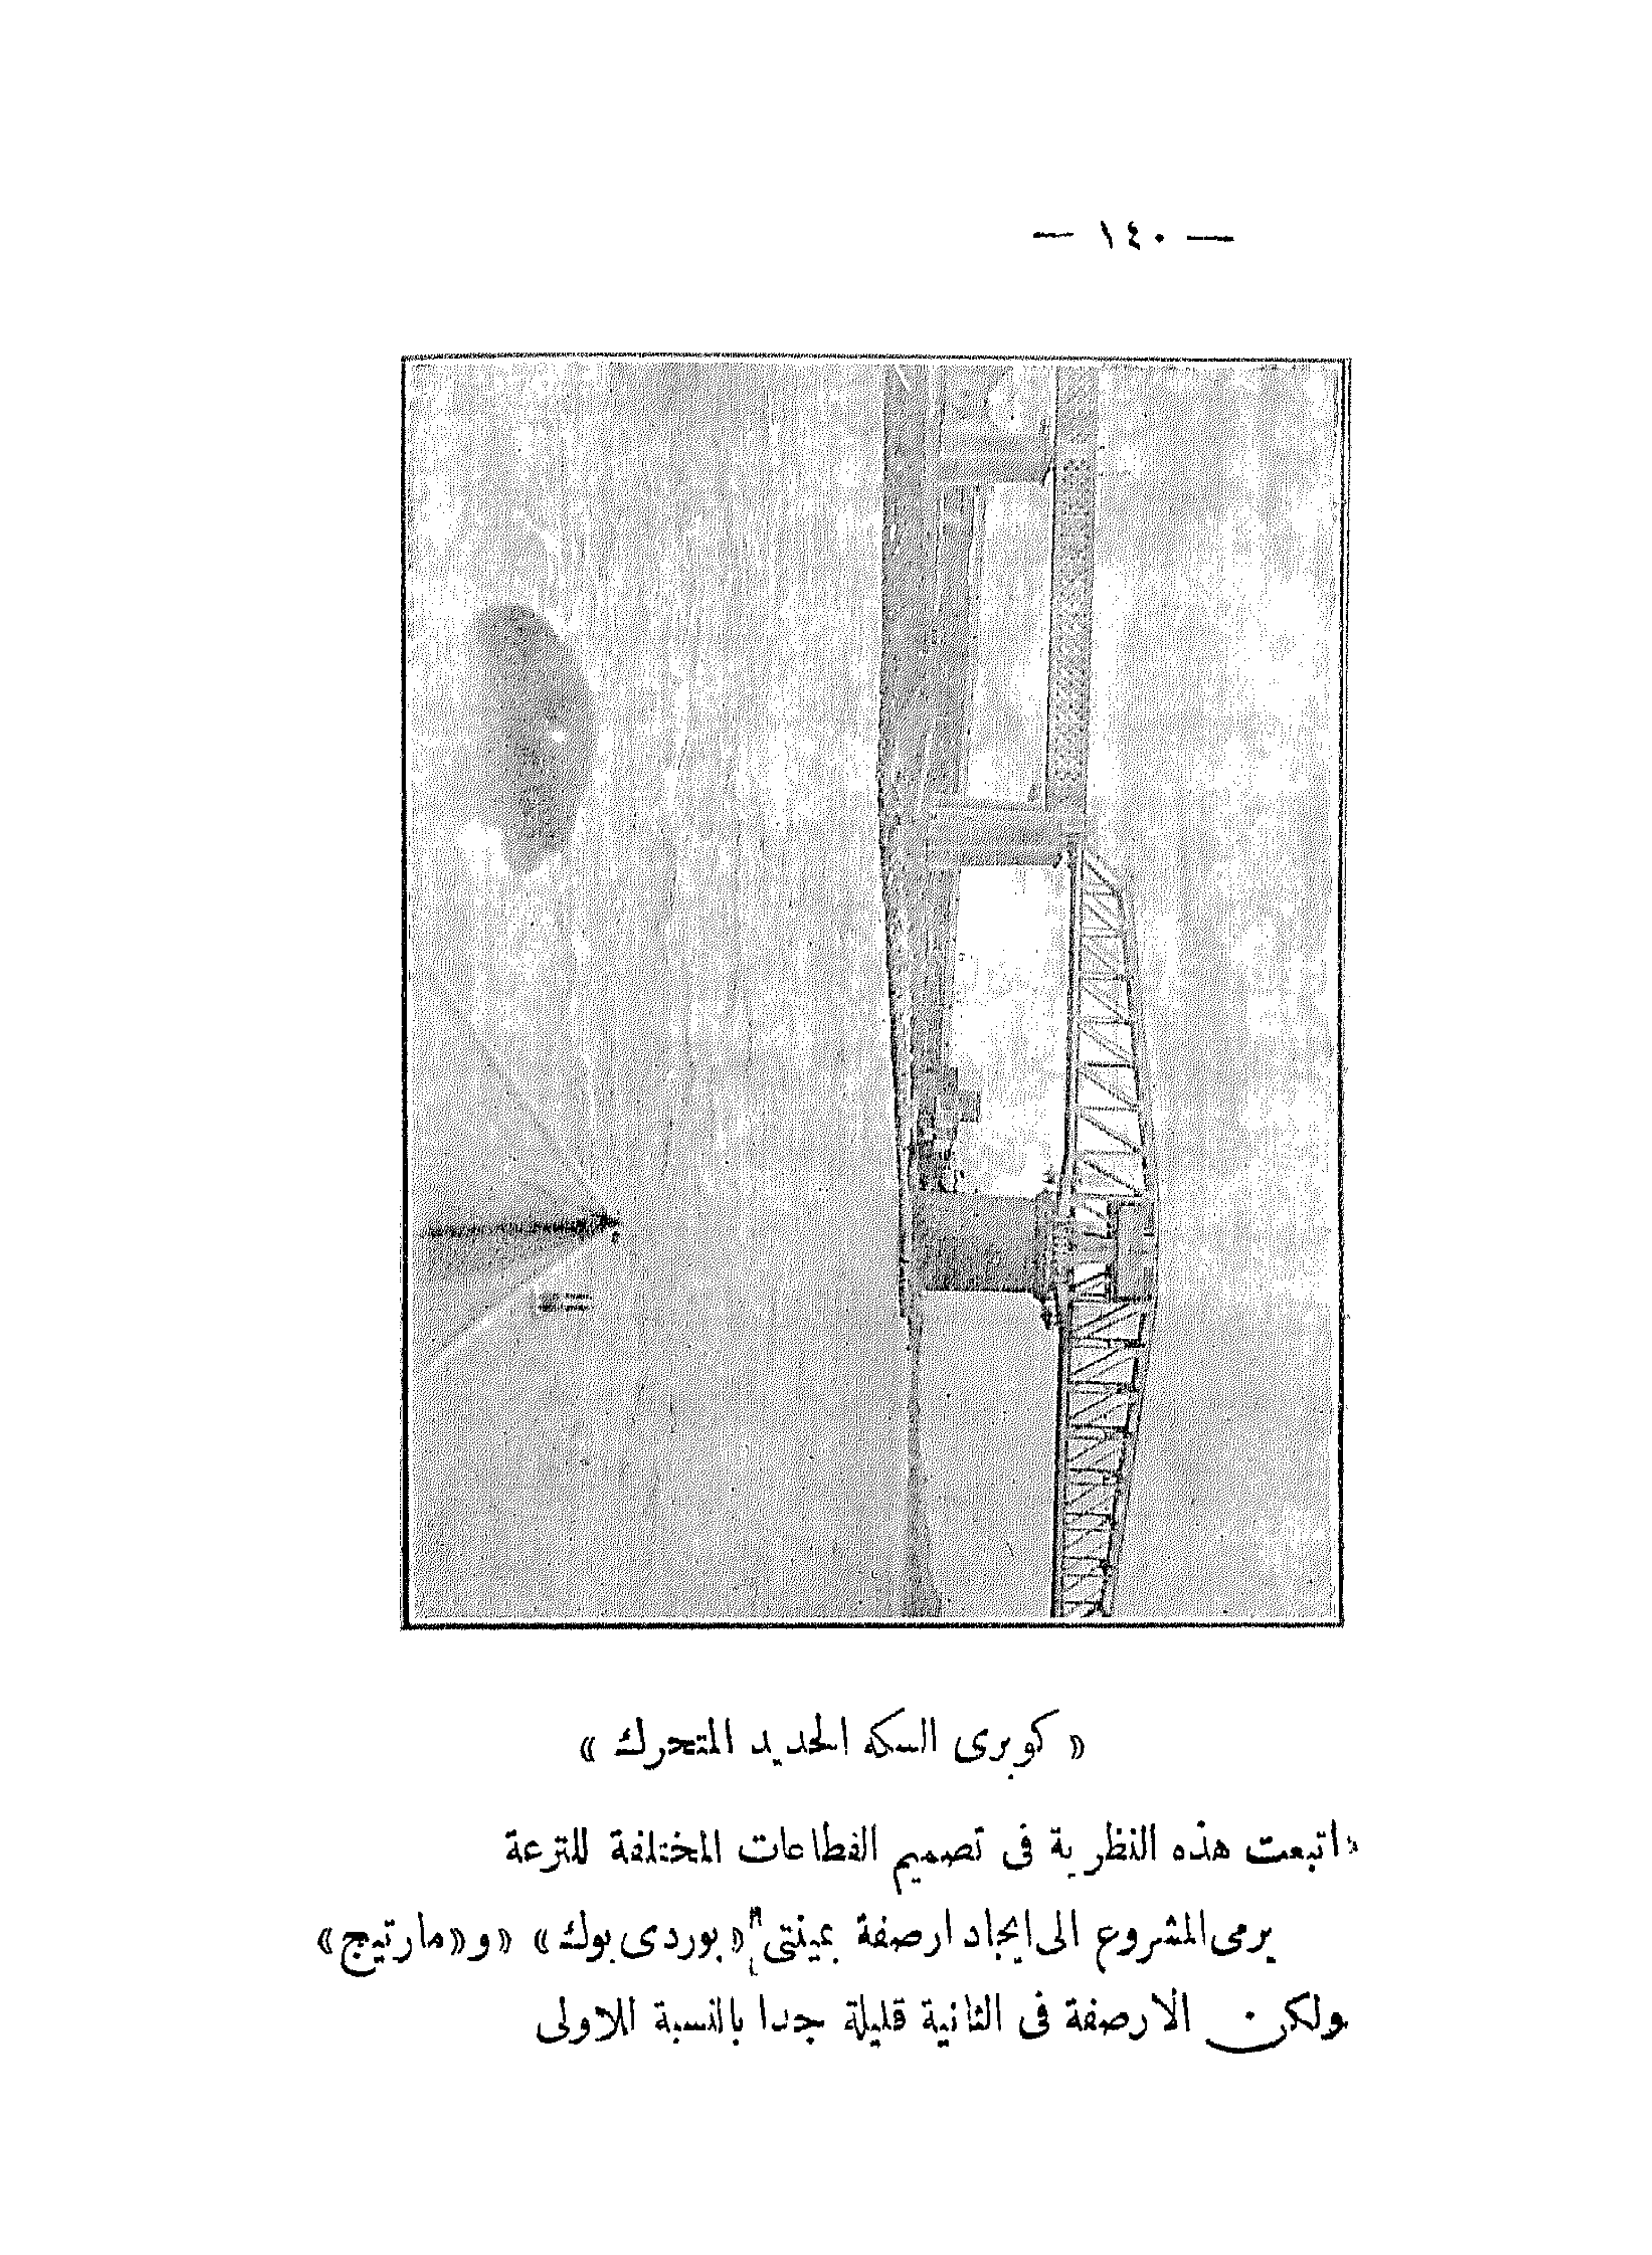 — ١٤٠ —
« كوبرى السكه الحديد المتحرك »
اتبعت هذه النظرية فى تصميم القطاعات المختلفة للترعة
يرمى المشروع الى ايجاد ارصفة بمينتى « بوردى بوك » و « مارتيج »
ولكن الارصفة فى الثانية قليلة جدا بالنسبة للاولى